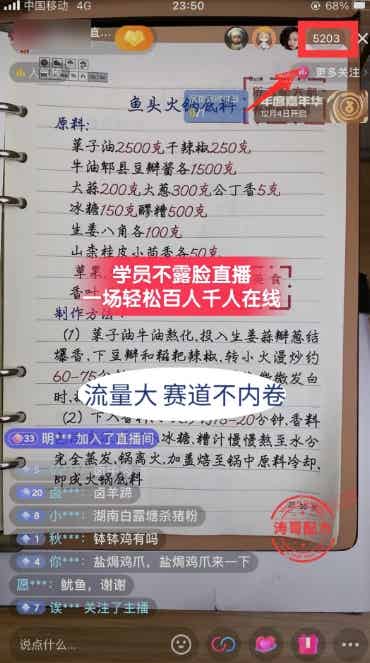 中国移动 4G
23:50
68%
直...
5203
人气榜
更多关注
年度嘉年华
12月4日开启
鱼头火锅底料
原料:
菜子油2500克干辣椒250克
牛油郫县豆瓣酱各1500克
大蒜200克大葱300克公丁香5克
冰糖150克醪糟500克
生姜八角各100克
山柰桂皮小茴香各50克
草果
美食
学员不露脸直播
一场轻松百人千人在线
香叶
制作方法:
(1) 菜子油牛油熟化,投入生姜蒜瓣葱结
爆香,下豆瓣和糍粑辣椒,转小火漫炒约
60-75分
微微发白
流量大 赛道不内卷
时,
(2) 下入香料
15-20分钟,香料
33 明*** 加入了直播间
冰糖,糟汁慢慢熬至水分
完全蒸发,锅离火,加盖焐至锅中原料冷却,
即成火锅底料
20 卤***: 卤羊蹄
8 小***: 湖南白露塘杀猪粉
1 秋***: 钵钵鸡有吗
4 你***: 盐焗鸡爪,盐焗鸡爪来一下
愿***: 鱿鱼,谢谢
7 诶*** 关注了主播
涛哥配方
说点什么...